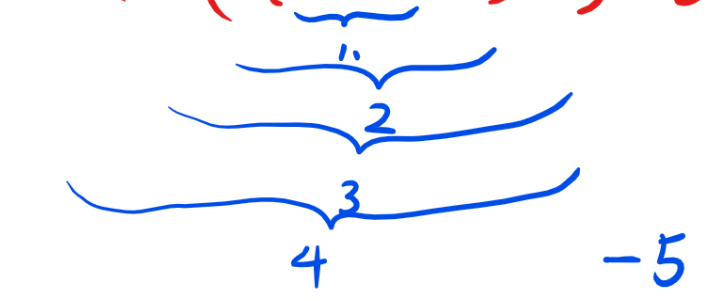 1.
2
3
4 -5